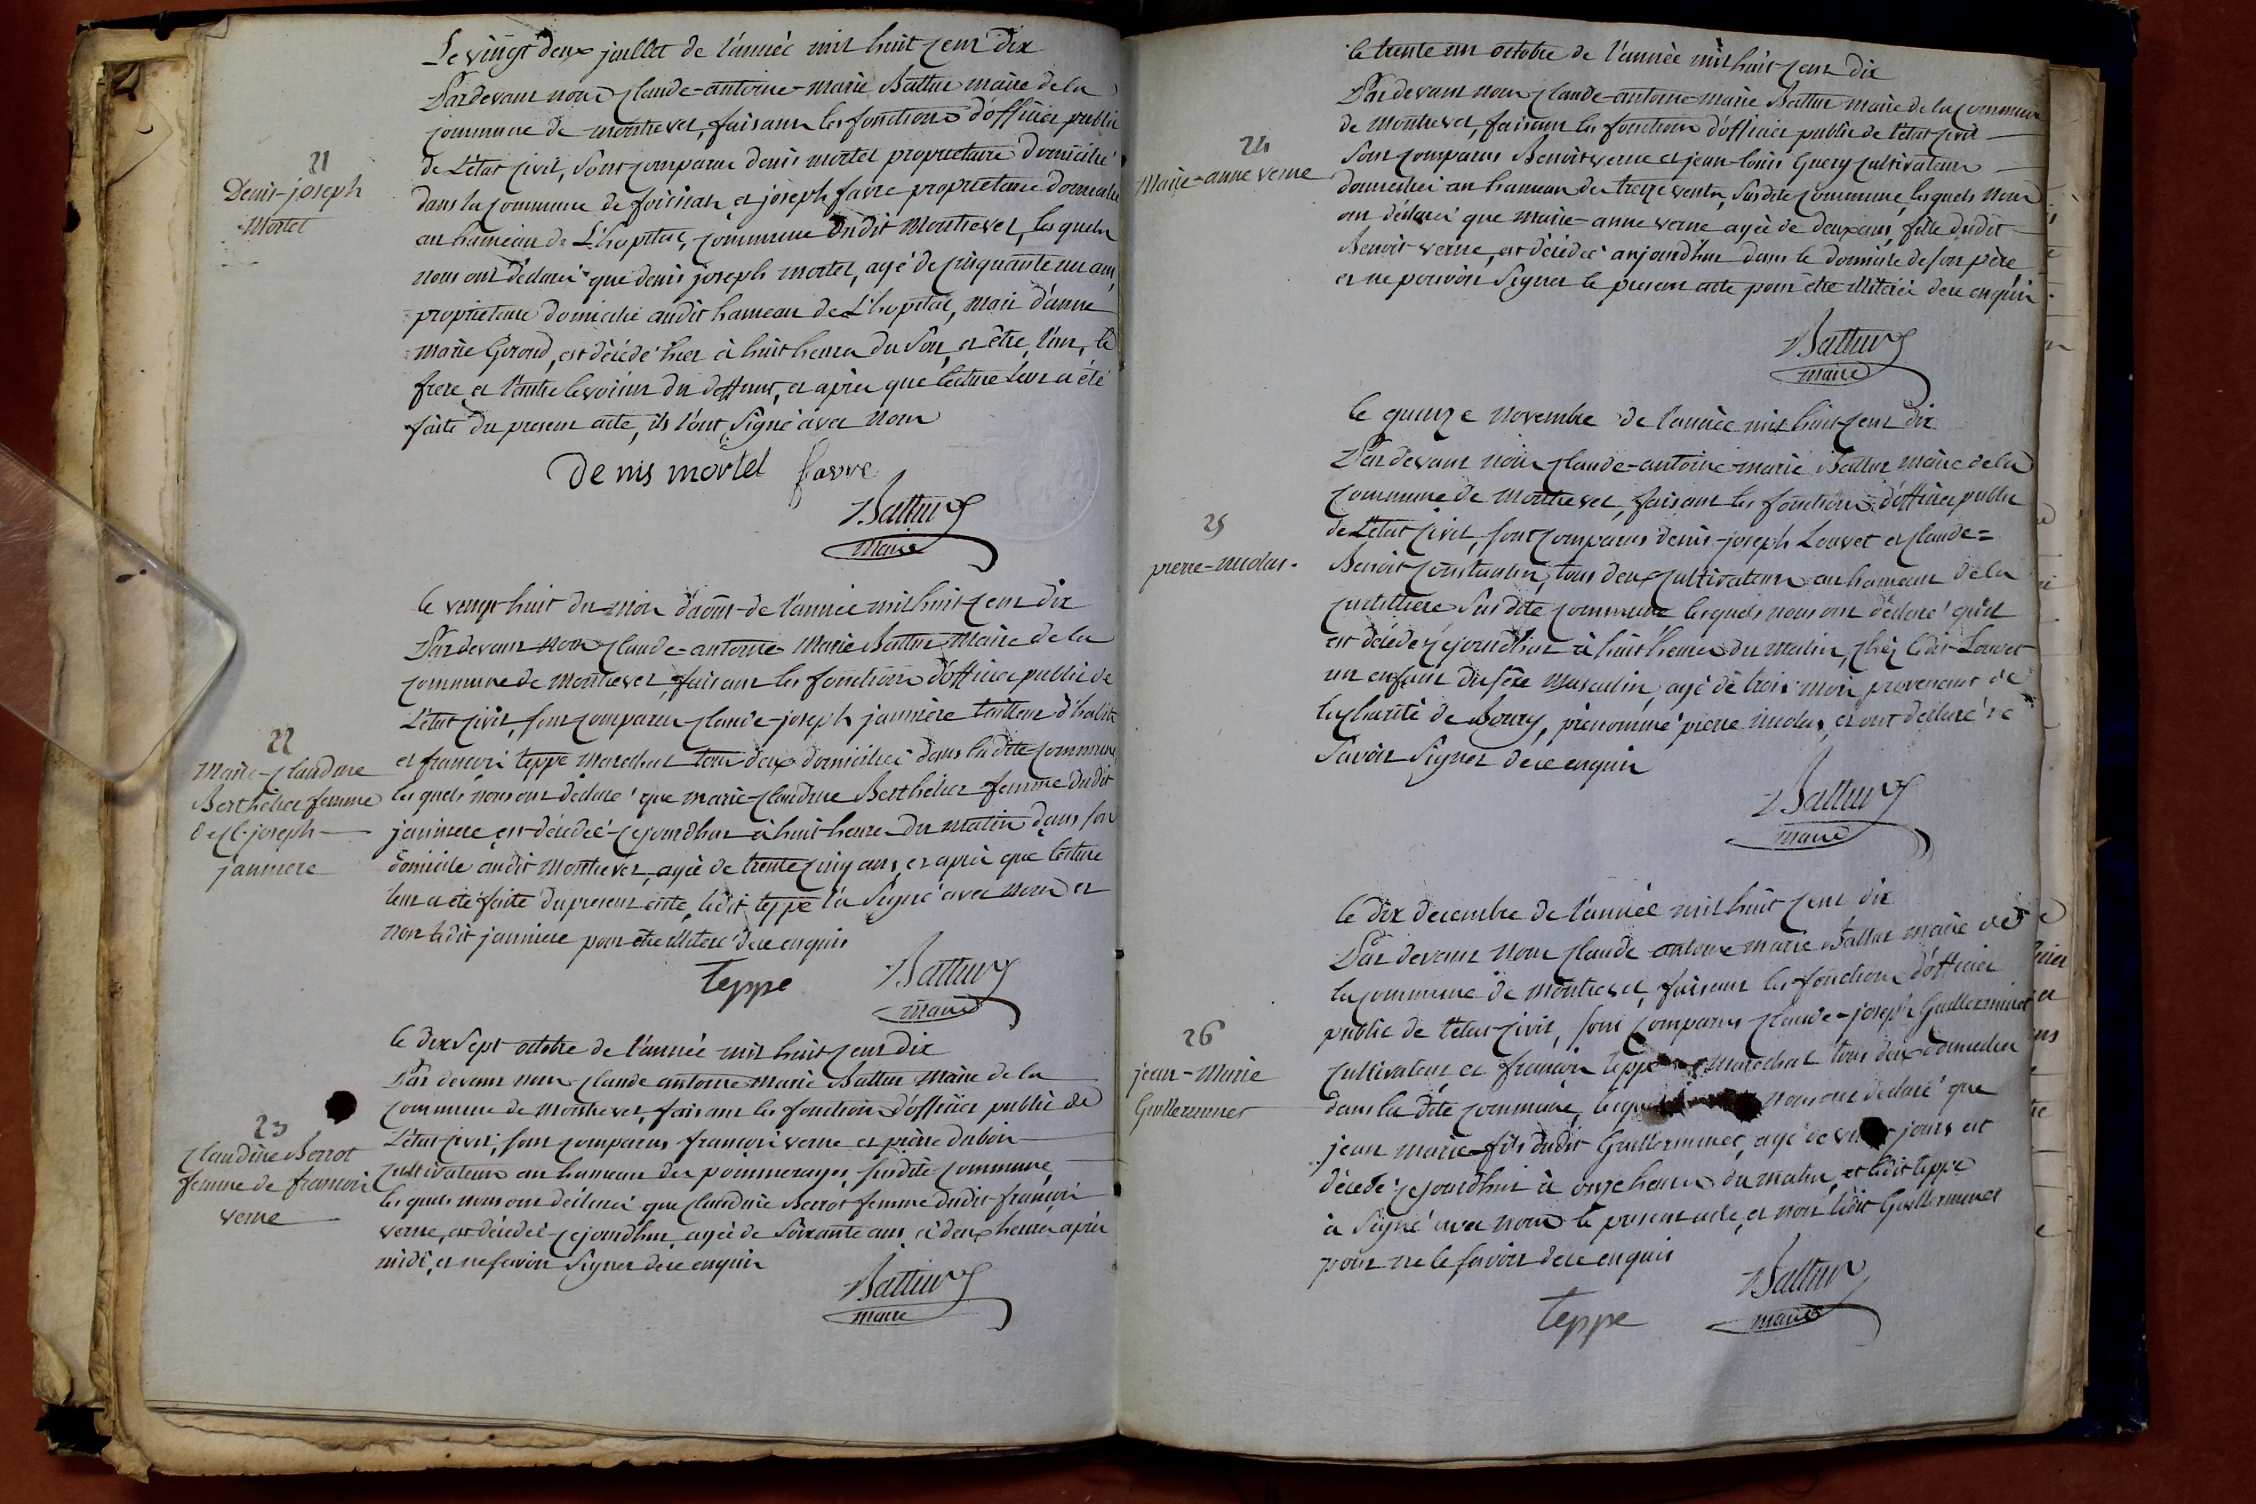 Le vingt deux juillet de l'année mil huit cent dix
Pardevant nous claude-antoine-marie Battur maire de la
commune de montrevel, faisant les fonctions d'officier public
de L'etat civil, sont comparus denis mortel proprietaire domicilié
dans la commune de foissiat, et joseph favre proprietaire domicilié
au hameau de L'hopital, commune dudit Montrevel, lesquels
nous ont déclaré que denis joseph mortel, agé de cinquante un ans,
proprietaire domicilié audit hameau de L'hopital, mari d'anne
marie Giroud, est décédé hier à huit heures du soir, et être, l'un, le
frere, et l'autre le voisin du deffunt, et après que lecture leur a été
faite du present acte, ils l'ont signé avec nous
21
Denis-joseph
Mortel
denis mortel favre
Battur
Maire
le vingt huit du mois d'août de l'année mil huit cent dix
Pardevant nous claude-antoine-Marie Battur Maire de la
commune de Montrevel, faisant les fonctions d'officier public de
L'etat civil, sont comparus claude-joseph janniere tailleur d'habits
et françois teppe marechal tous deux domiciliés dans ladite commune
lesquels nous ont déclaré que marie-claudine Berthelier femme dudit
janniere est décédée cejourdhui à huit heures du matin dans son
domicile audit Montrevel, agée de trente cinq ans, et après que lecture
leur a été faite du present acte, ledit teppe l'a signé avec nous et
non ledit janniere pour être illiteré de ce enquis
22
Marie-claudine
Berthelier femme
de cl. joseph
janniere
teppe Battur
Maire
le dix sept octobre de l'année mil huit cent dix
Par devant nous claude antoine marie Battur Maire de la
commune de Montrevel, faisant les fonctions d'officier public de
L'etat civil, sont comparus françois verne et pierre dubois
cultivateurs au hameau des pommerages, susdite commune,
lesquels nous ont déclaré que claudine Berrot femme dudit françois
verne, est décédée cejourdhui, agée de soixante ans, à deux heures après
midi, et ne savoir signer de ce enquis
23
claudine Berrot
femme de françois
verne
Battur
maire
le trente un octobre de l'année mil huit cent dix
Par devant nous claude-antoine-marie Battur maire de la commune
de Montrevel, faisant les fonctions d'officier public de l'etat civil
sont comparus Benoit verne et jean-louis Guery cultivateurs
domiciliés au hameau de treize vents, susdite commune, lesquels nous
ont déclaré que marie-anne verne agée de deux ans, fille dudit
Benoit verne, est décédée aujourdhui dans le domicile de son père,
et ne pouvoir signer le present acte pour être illiterés de ce enquis
24
Marie-anne verne
Battur
maire
le quinze novembre de l'année mil huit cent dix
Par devant nous claude-antoine-marie Battur maire de la
commune de montrevel, faisant les fonctions d'officier public
de L'etat civil, sont comparus denis-joseph Louvet et claude=
Benoit constantin, tous deux cultivateurs au hameau de la
susdite commune lesquels nous ont déclaré qu'il
est décédé cejourdhui à huit heures du matin, chez ledit Louvet
un enfant du sexe masculin, agé de trois mois, provenant de
la charité de Bourg, prénommé pierre nicolas, et ont déclaré ne
savoir signer de ce enquis
25
pierre-nicolas.
Battur
maire
le dix decembre de l'année mil huit cent dix
Par devant nous claude antoine marie Battur maire de
la commune de montrevel, faisant les fonctions d'officier
public de l'etat civil, sont comparus claude-joseph Guillerminet
cultivateur et françois teppe marechal tous deux domiciliés
dans la dite commune, nous ont declaré que
jean marie fils dudit Guillerminet, agé de jours est
décédé cejourdhui à onze heures du matin, et ledit teppe
a signé avec nous le present acte, et non ledit Guillerminet
pour ne le savoir de ce enquis
26
jean-Marie
Guillerminet
teppe Battur
maire